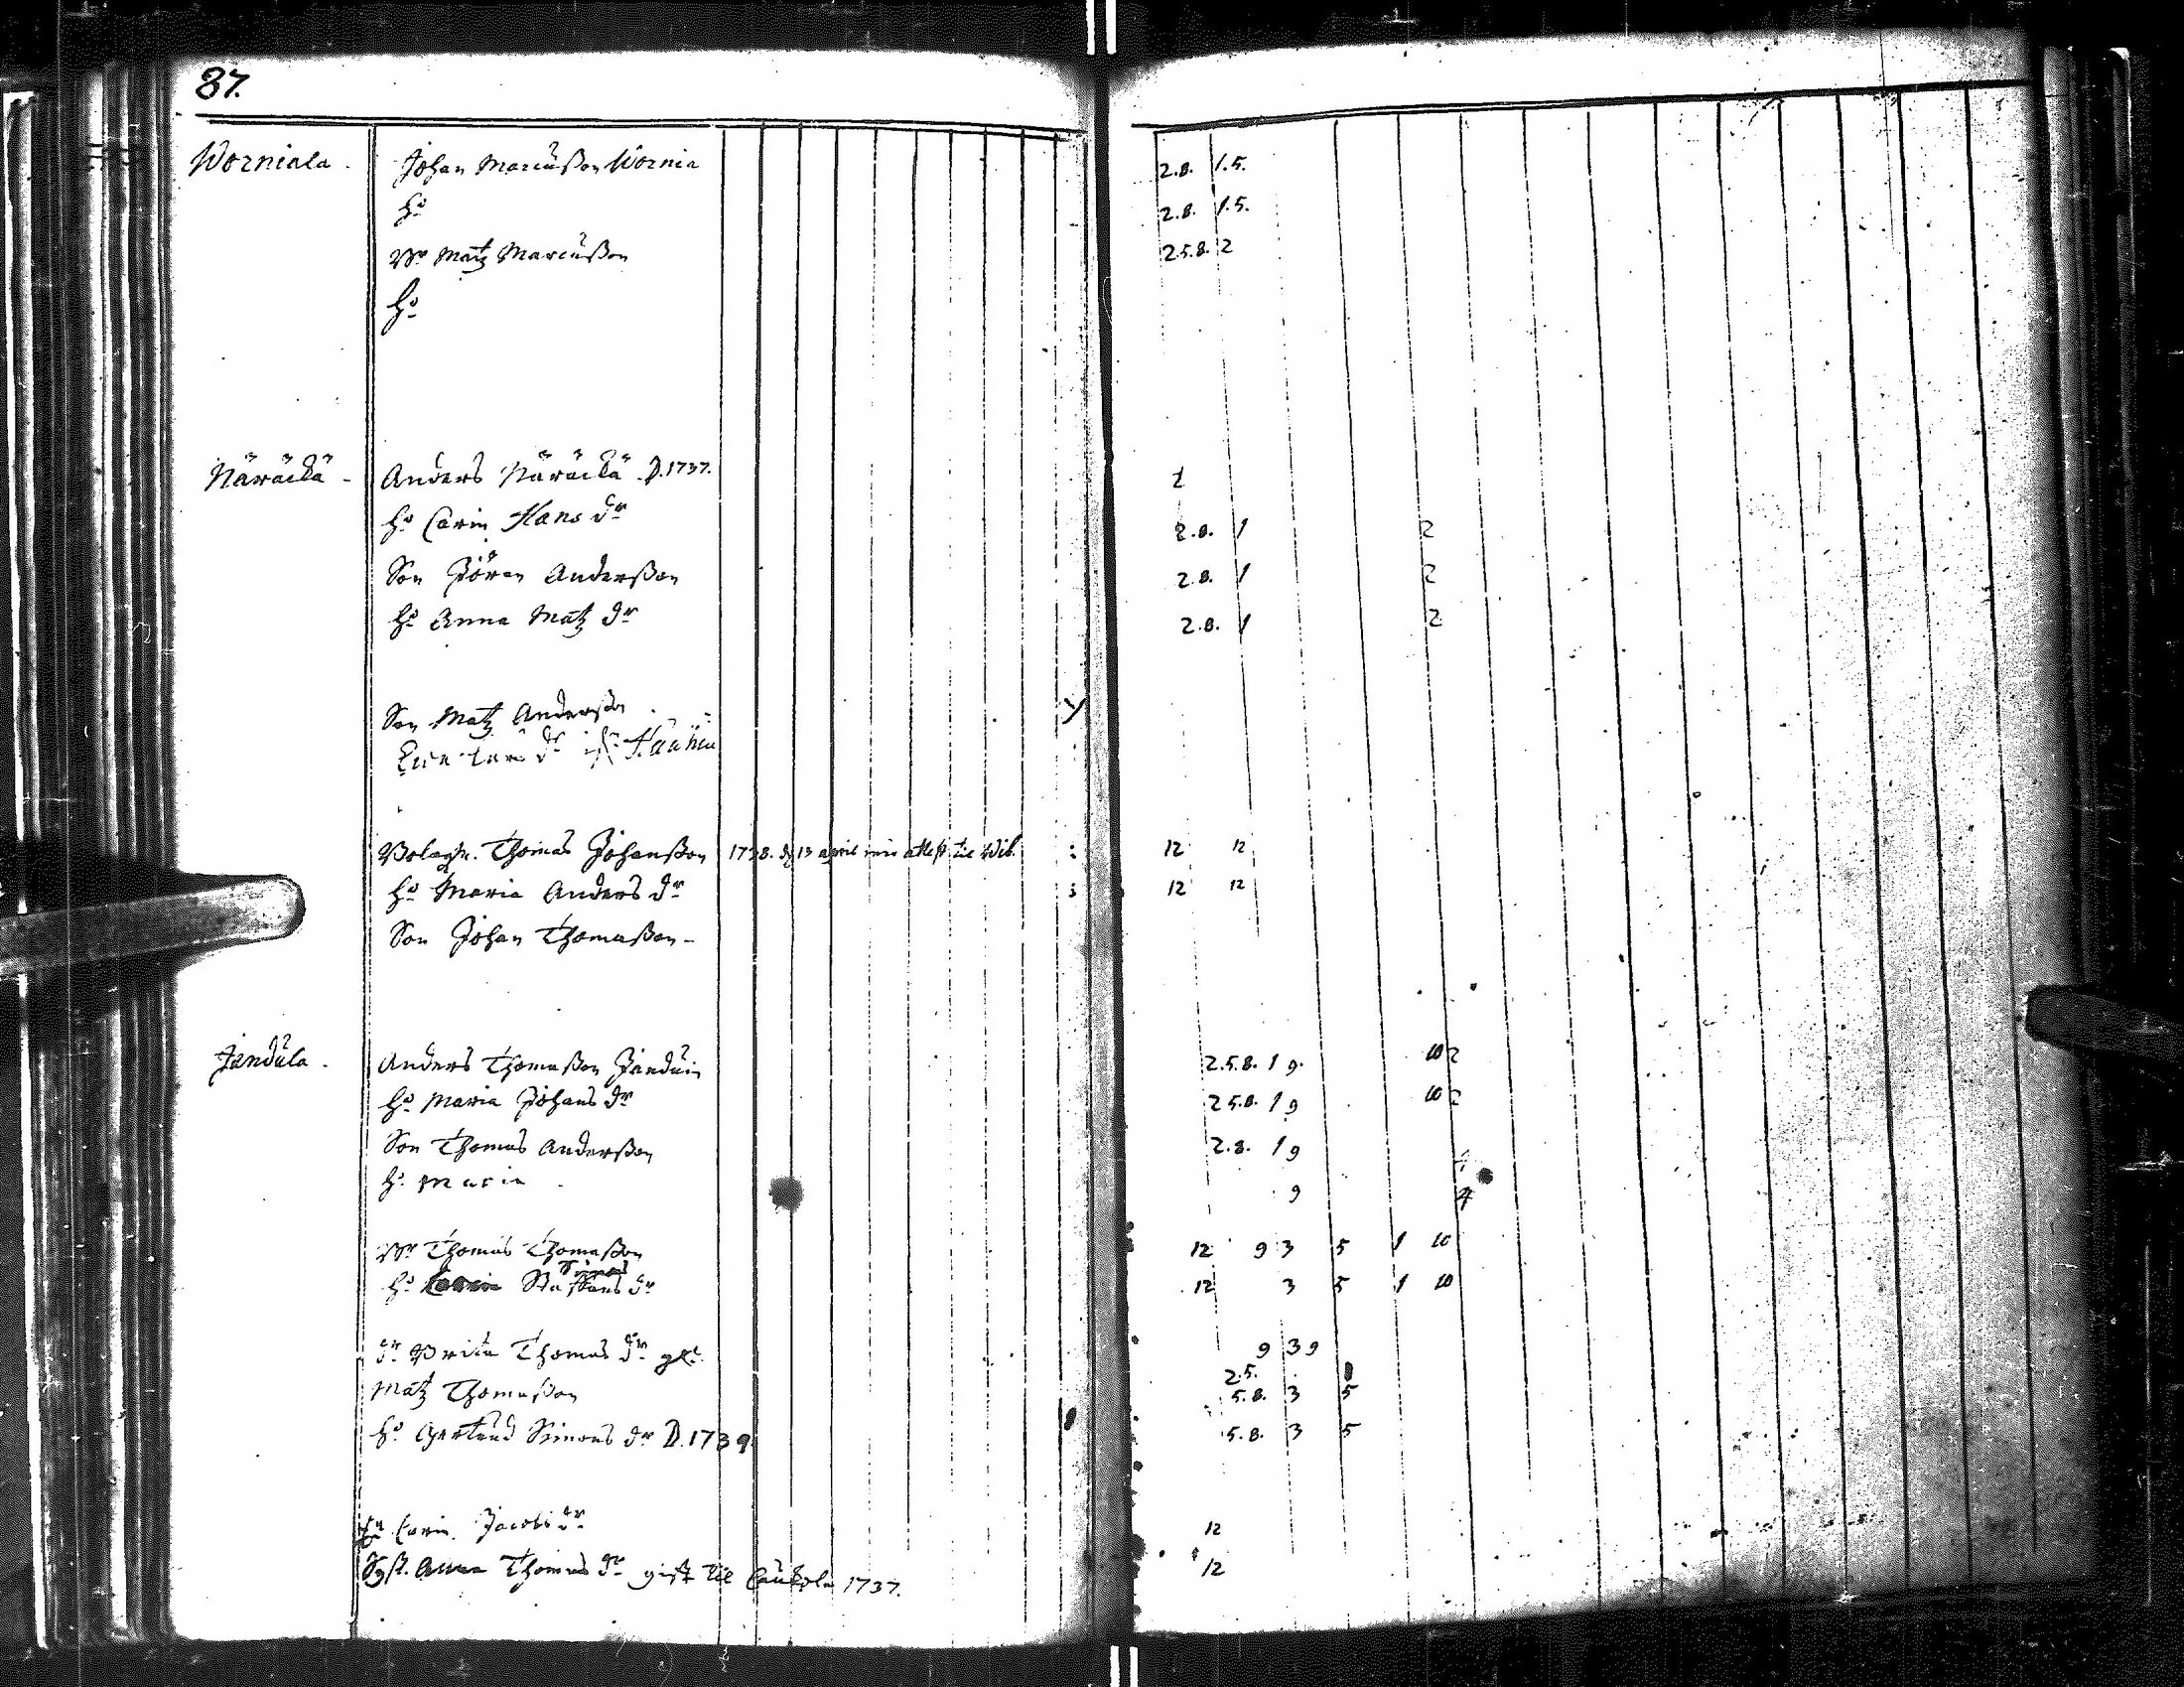 87.
Worniala. Johan Marcußon Wornia 2.8. 1.5.
h:o 2.8. 1.5.
Br Matz Marcußon 2.5.8. 2
h:o
Näräckä - Anders Näräckä. D. 1737. 2
h:o Carin Hans dr 2.8. 1 2
Son Jören Anderßon 2.8. 1 2
h:o Anna Matz dr 2.8. 1 2
Son Matz Anderßon
dr
Bolagm. Thomas Johanßon 1738. d. 13 april attest til Wib. 12 12
h:o Maria Anders dr 12 12
Son Johan Thomaßon -
Jandula. Anders Thomaßon Janduin 2.5.8. 1 9. 10 2
h:o Maria Johans dr 2 5.8. 1 9 10 2
Son Thomas Anderßon 2.8. 1 9
h: Maria 9 4
Br Thomas Thomaßon 12 9 3 5 1 10
h:o Staffans dr 12 3 5 1 10
dr Brita Thomas dr 9 3 9
2.5.
Matz Thomaßon 5.8. 3 5
h:o Gertrud Simons dr D. 1739 5.8. 3 5
Carin Jacobs dr 12
Syst. Anna Thomas dr gift til Caukola 1737. 12